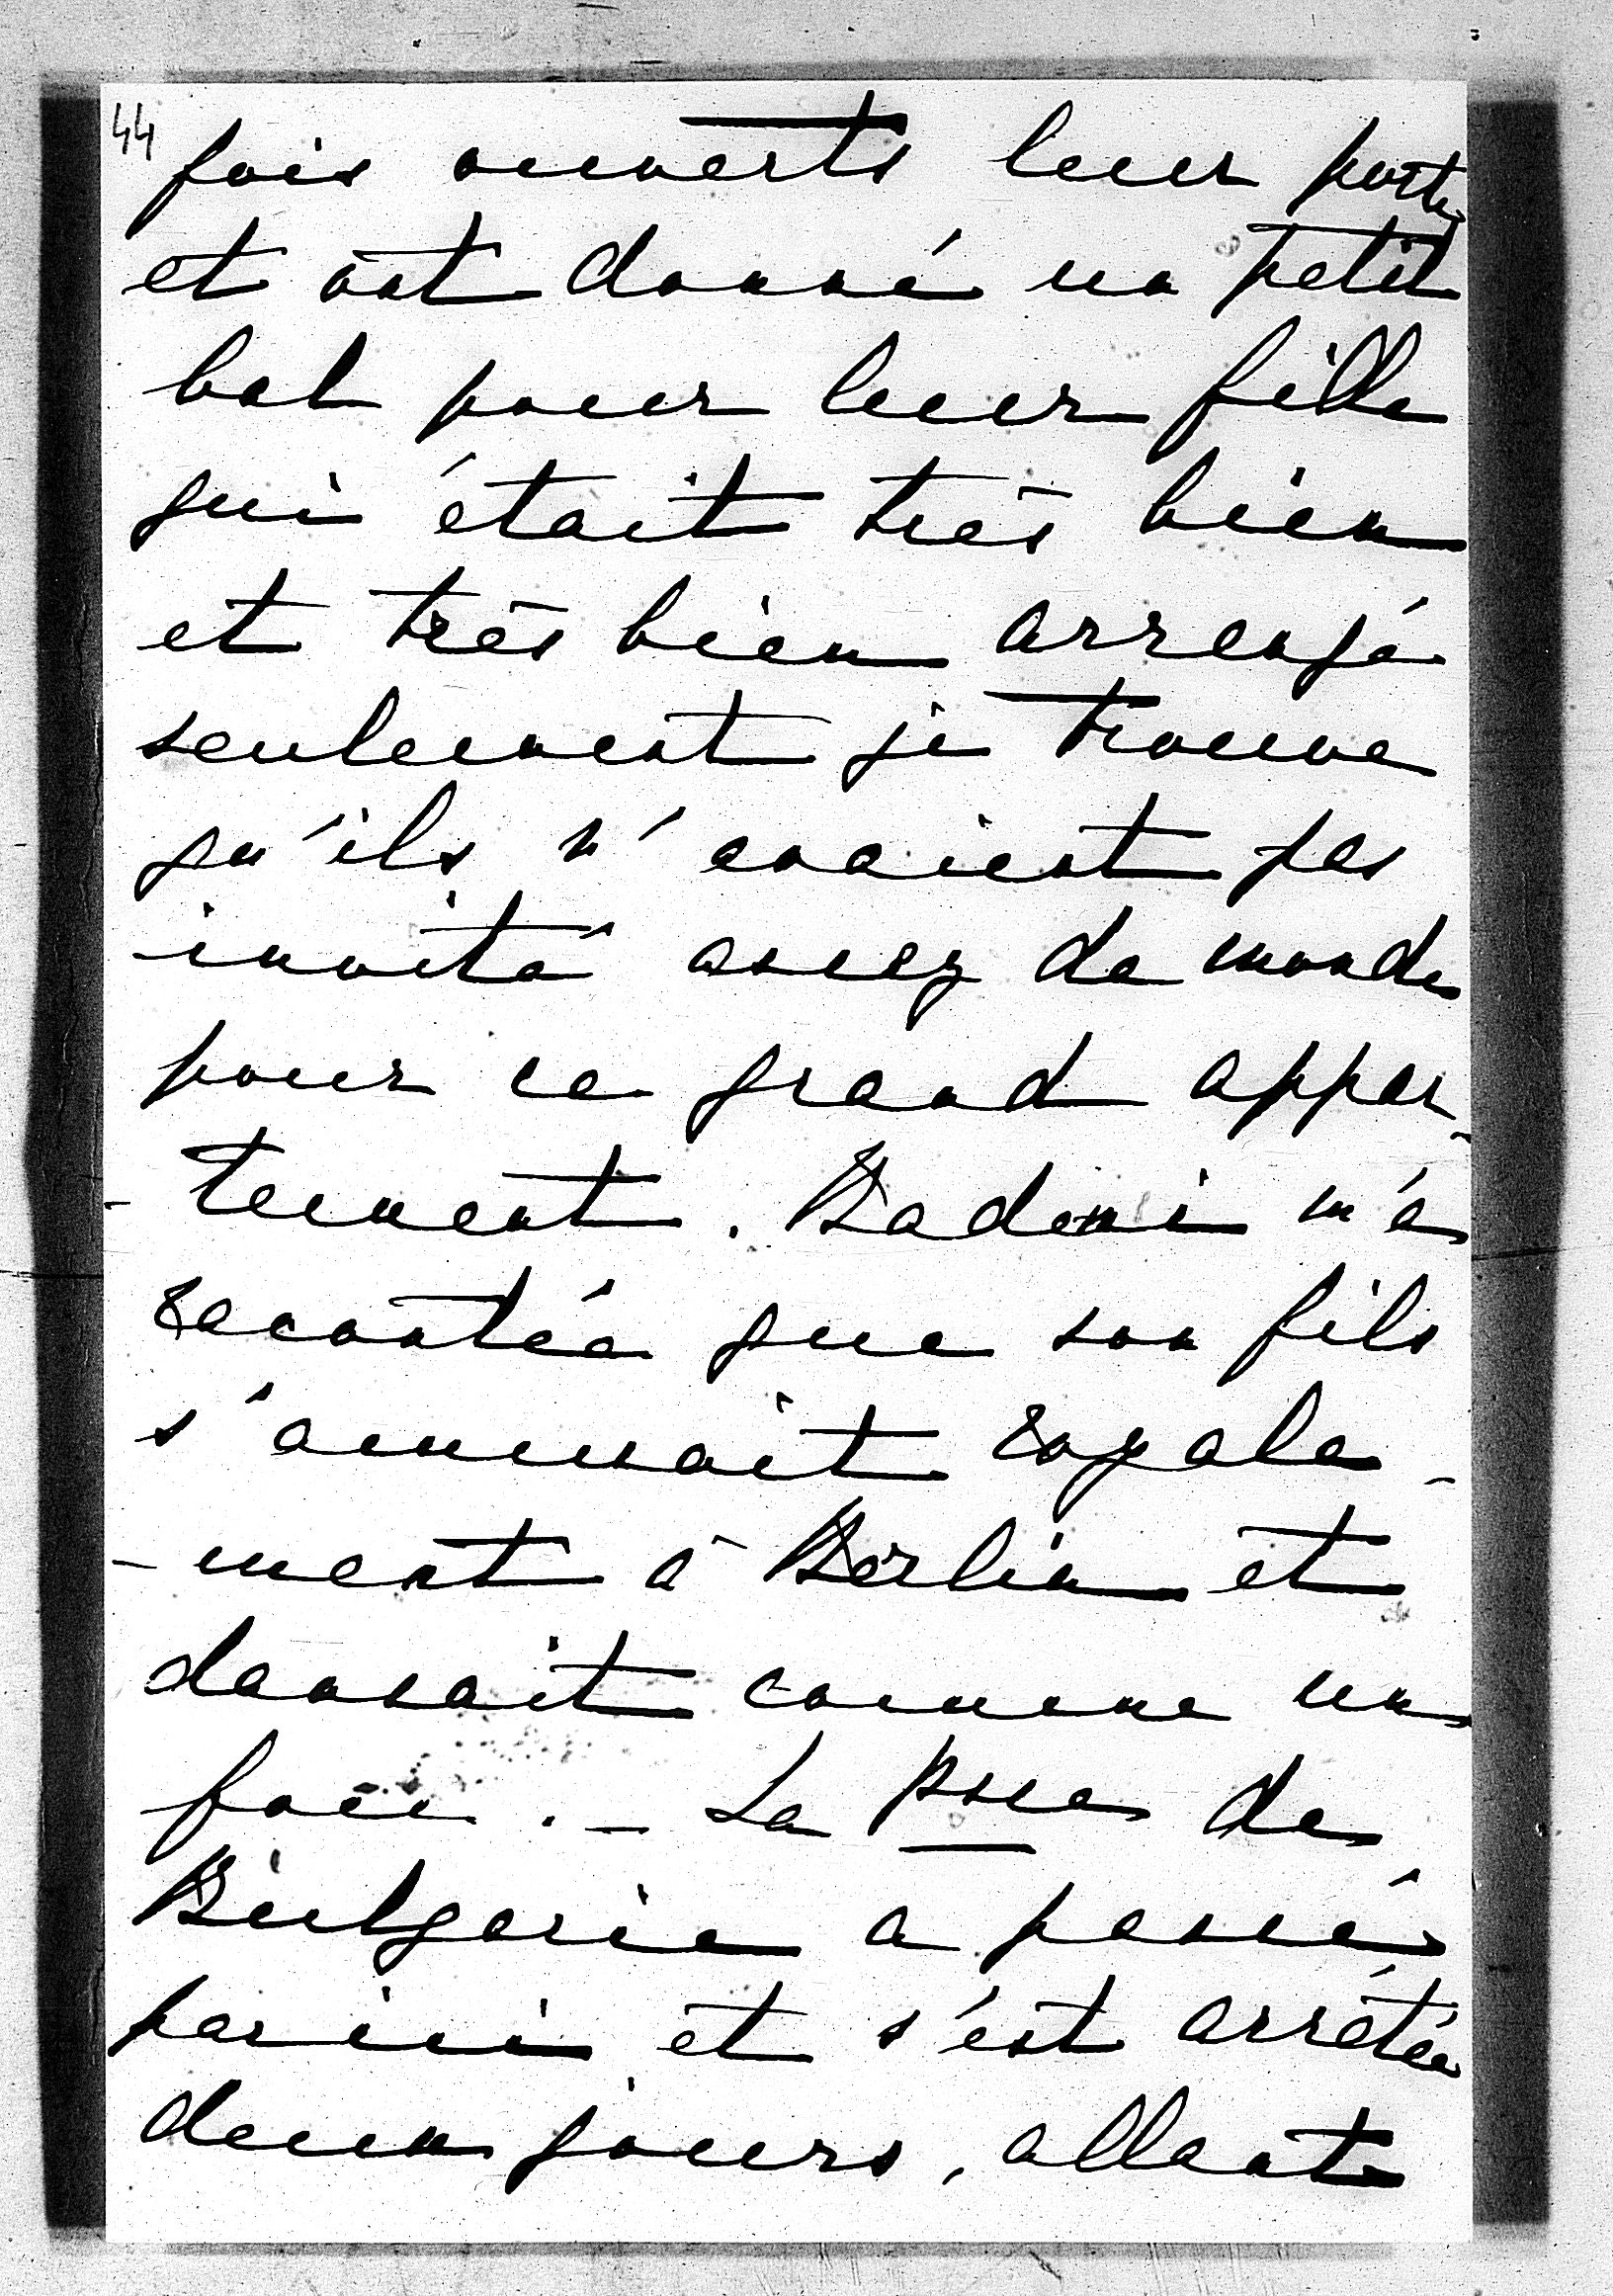 44
fois ouverts leur porte
et ont donné un petit
bal pour leur fille
qui était très bien
et très bien arrangé
seulement je trouve
qu'ils n'avaient pas
invité assez de monde
pour ce grand appar-
-tement. Badeni m'a
racontée que son fils
s'amusait royale-
-ment à Berlin et
dansait comme un
fou. - La Psse de
Bulgarie a passé
par ici et s'est arrêtée
deux jours, allant